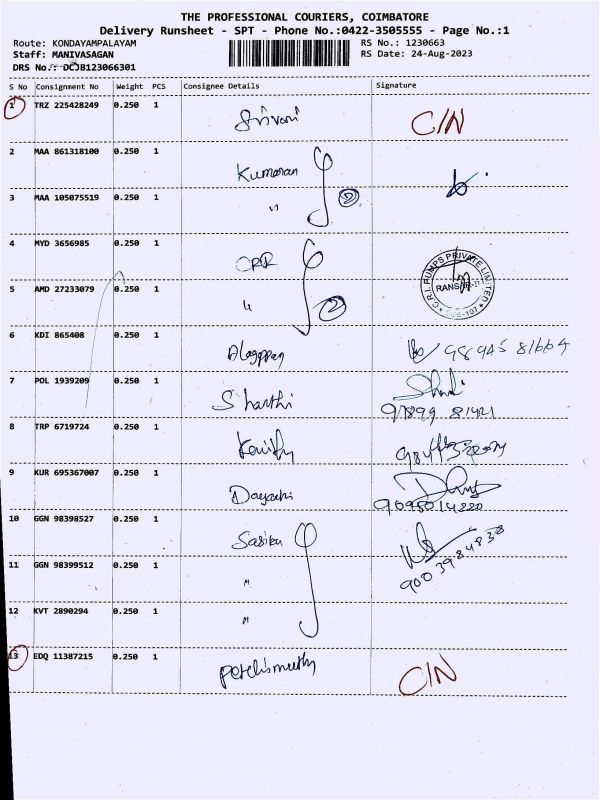 THE PROFESSIONAL COURIERS, COIMBATORE
Delivery Runsheet - SPT - Phone No.:0422-3505555 - Page No.:1
Route: KONDAYAMPALAYAM RS No.: 1230663
Staff: MANIVASAGAN RS Date: 24-Aug-2023
DRS No.: DCJB123066301
S No Consignment No Weight PCS Consignee Details Signature
1 TRZ 225428249 0.250 1 Srivari C/N
2 MAA 861318100 0.250 1 Kumaran
3 MAA 105075519 0.250 1 " 2
4 MYD 3656985 0.250 1 CRR
C.R.I. PUMPS PRIVATE LIMITED
5 AMD 27233079 0.250 1 " 2
6 KDI 865408 0.250 1 Alagappan 98945 81664
7 POL 1939209 0.250 1 Sharthi
97899 81421
8 TRP 6719724 0.250 1
9 KUR 695367007 0.250 1 Dayachi
9095014220
10 GGN 98398527 0.250 1 Sasiku
11 GGN 98399512 0.250 1 " 9003984838
12 KVT 2890294 0.250 1 "
13 EDQ 11387215 0.250 1 Petchimuthy C/N